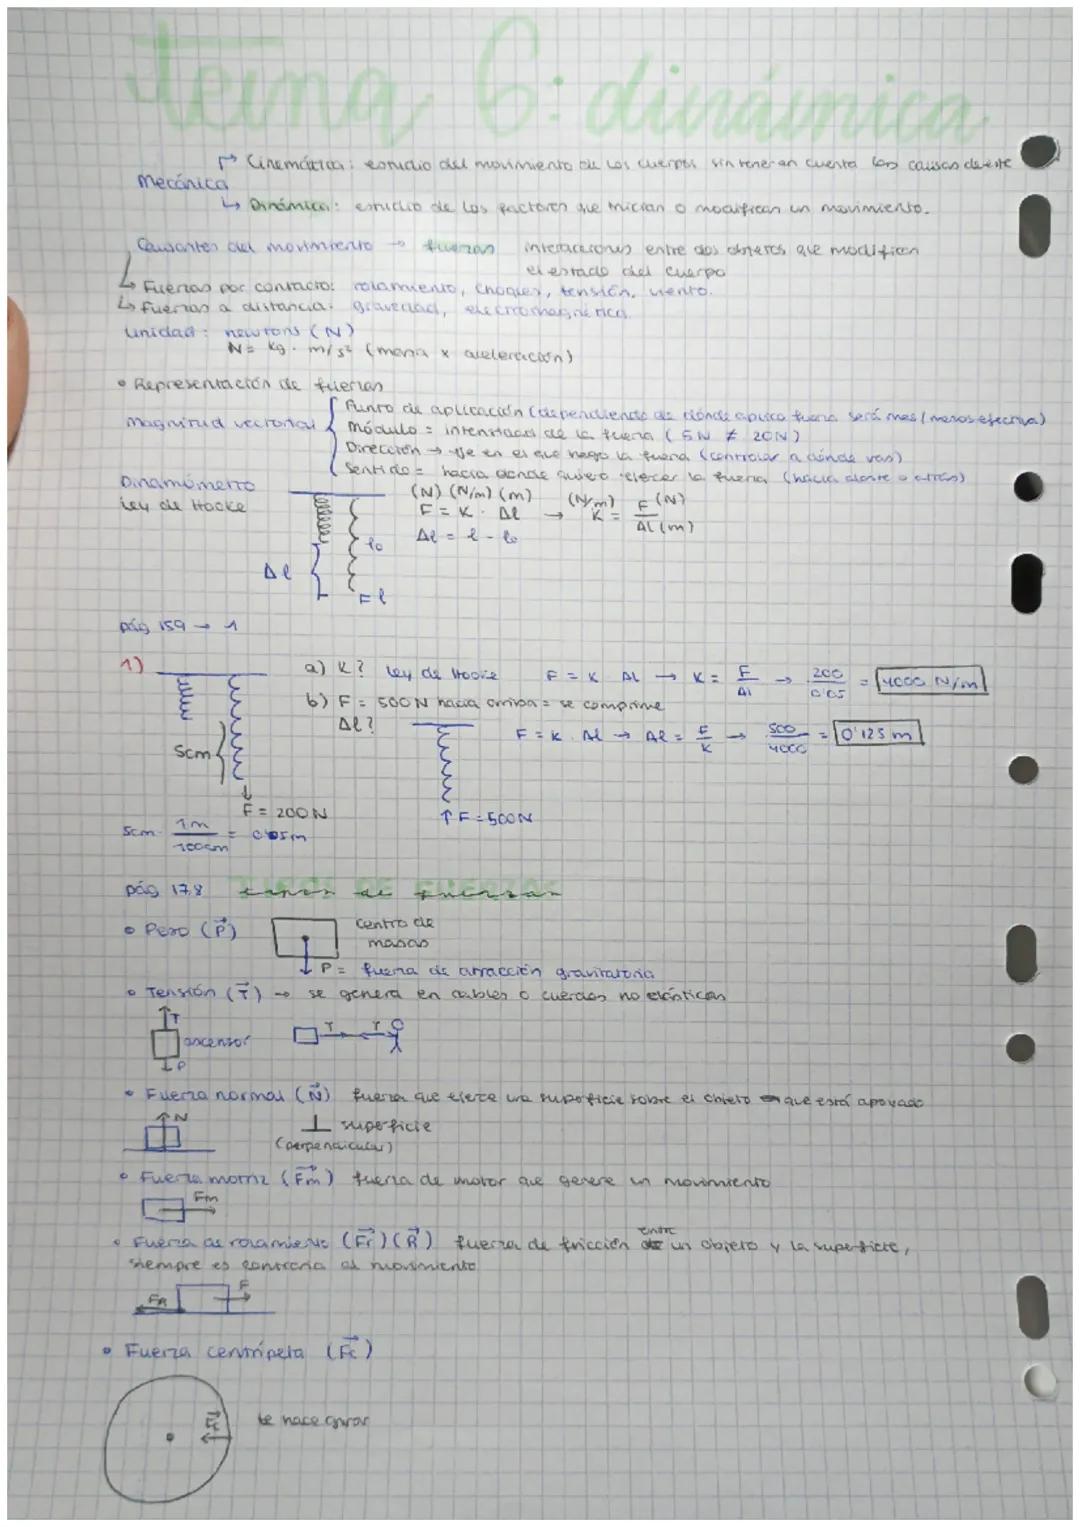 tema 6: dinámica
Cinemática: estudio del movimiento de los cuerpos sin tener en cuenta las causas de este
Mecánica
Dinámica: estudio de los factores que inician o modifican un movimiento.
Causantes del movimiento → fuerzas interacciones entre dos objetos que modifican
el estado del cuerpo
Fuerzas por contacto: rozamiento, choques, tensión, viento.
Fuerzas a distancia: gravedad, electromagnética.
Unidad: newtons (N)
N = kg · m/s² (masa x aceleración)
• Representación de fuerzas
Punto de aplicación (dependiendo de dónde aplico fuerza será más/menos efectiva)
Magnitud vectorial
Módulo = intensidad de la fuerza (5N ≠ 20N)
Dirección → eje en el que hago la fuerza (controlar a dónde vas)
Sentido = hacia donde quiero ejercer la fuerza (hacia delante o atrás)
Dinamómetro
Ley de Hooke
(N) (N/m) (m)
F = K · Δl → (N/m) K = F (N) / Δl (m)
Δl = l - l₀
l₀
Δl
F l
pág 159 → 1
1)
a) K? Ley de Hooke F = K · Δl → K = F/Δl → 200/0'05 = 4000 N/m
b) F = 500N hacia arriba = se comprime
Δl? F = K · Δl → Δl = F/K → 500/4000 = 0'125 m
5cm
F = 200N
↑ F = 500N
5cm · 1m/100cm = 0'05m
pág 178 TIPOS DE FUERZAS tipos de fuerzas
• Peso (P) centro de
masas
P = fuerza de atracción gravitatoria
• Tensión (T) → se genera en cables o cuerdas no elásticas
T
ascensor T T
P
• Fuerza normal (N) fuerza que ejerce una superficie sobre el objeto que está apoyado
N
⊥ superficie
(perpendicular)
• Fuerza motriz (Fm) fuerza de motor que genere un movimiento
Fm
• Fuerza de rozamiento (Fr) (R) fuerza de fricción entre un objeto y la superficie,
siempre es contraria al movimiento
FR F
• Fuerza centrípeta (Fc)
Fc te hace girar